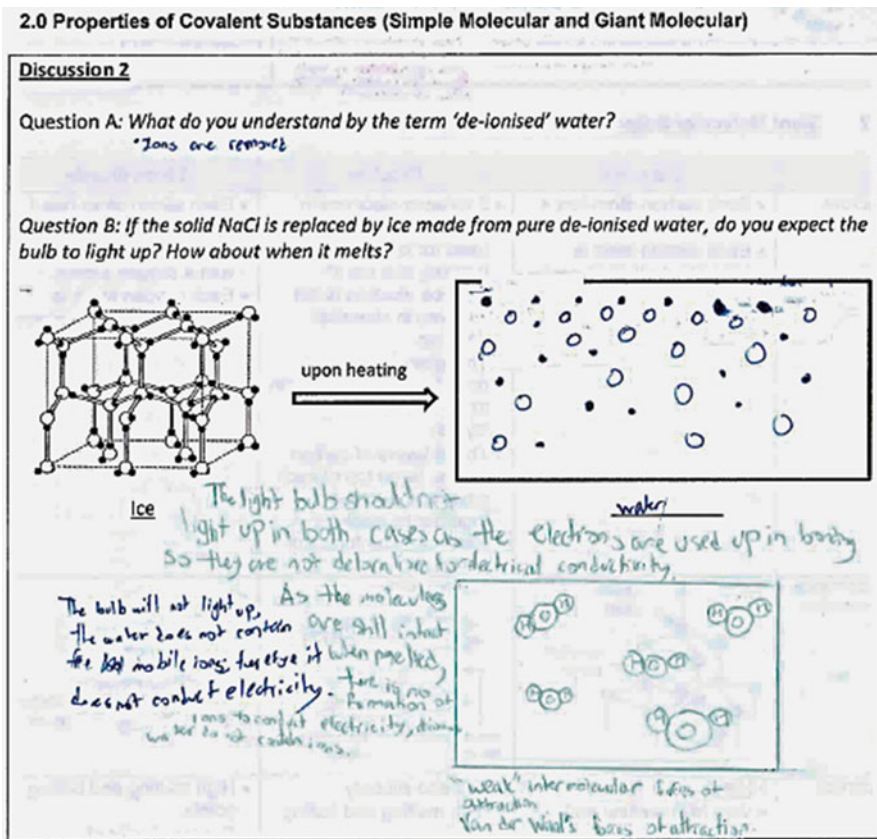 2.0 Properties of Covalent Substances (Simple Molecular and Giant Molecular)
Discussion 2
Question A: What do you understand by the term ‘de-ionised’ water?
*Ions are removed
Question B: If the solid NaCl is replaced by ice made from pure de-ionised water, do you expect the
bulb to light up? How about when it melts?
upon heating
Ice
water
The light bulb should not
light up in both cases as the electrons are used up in bonding
so they are not for electrical conductivity.
The bulb will not light up,
the water does not contain
mobile ions, therefore it
does not conduct electricity.
As the molecules
are still intact
when melted,
there is no
formation of
ions to conduct electricity,
water do not
H O H
H O H
H O H
H O H
H O H
"weak" intermolecular forces of
attraction
Van der Waal's forces of attraction.